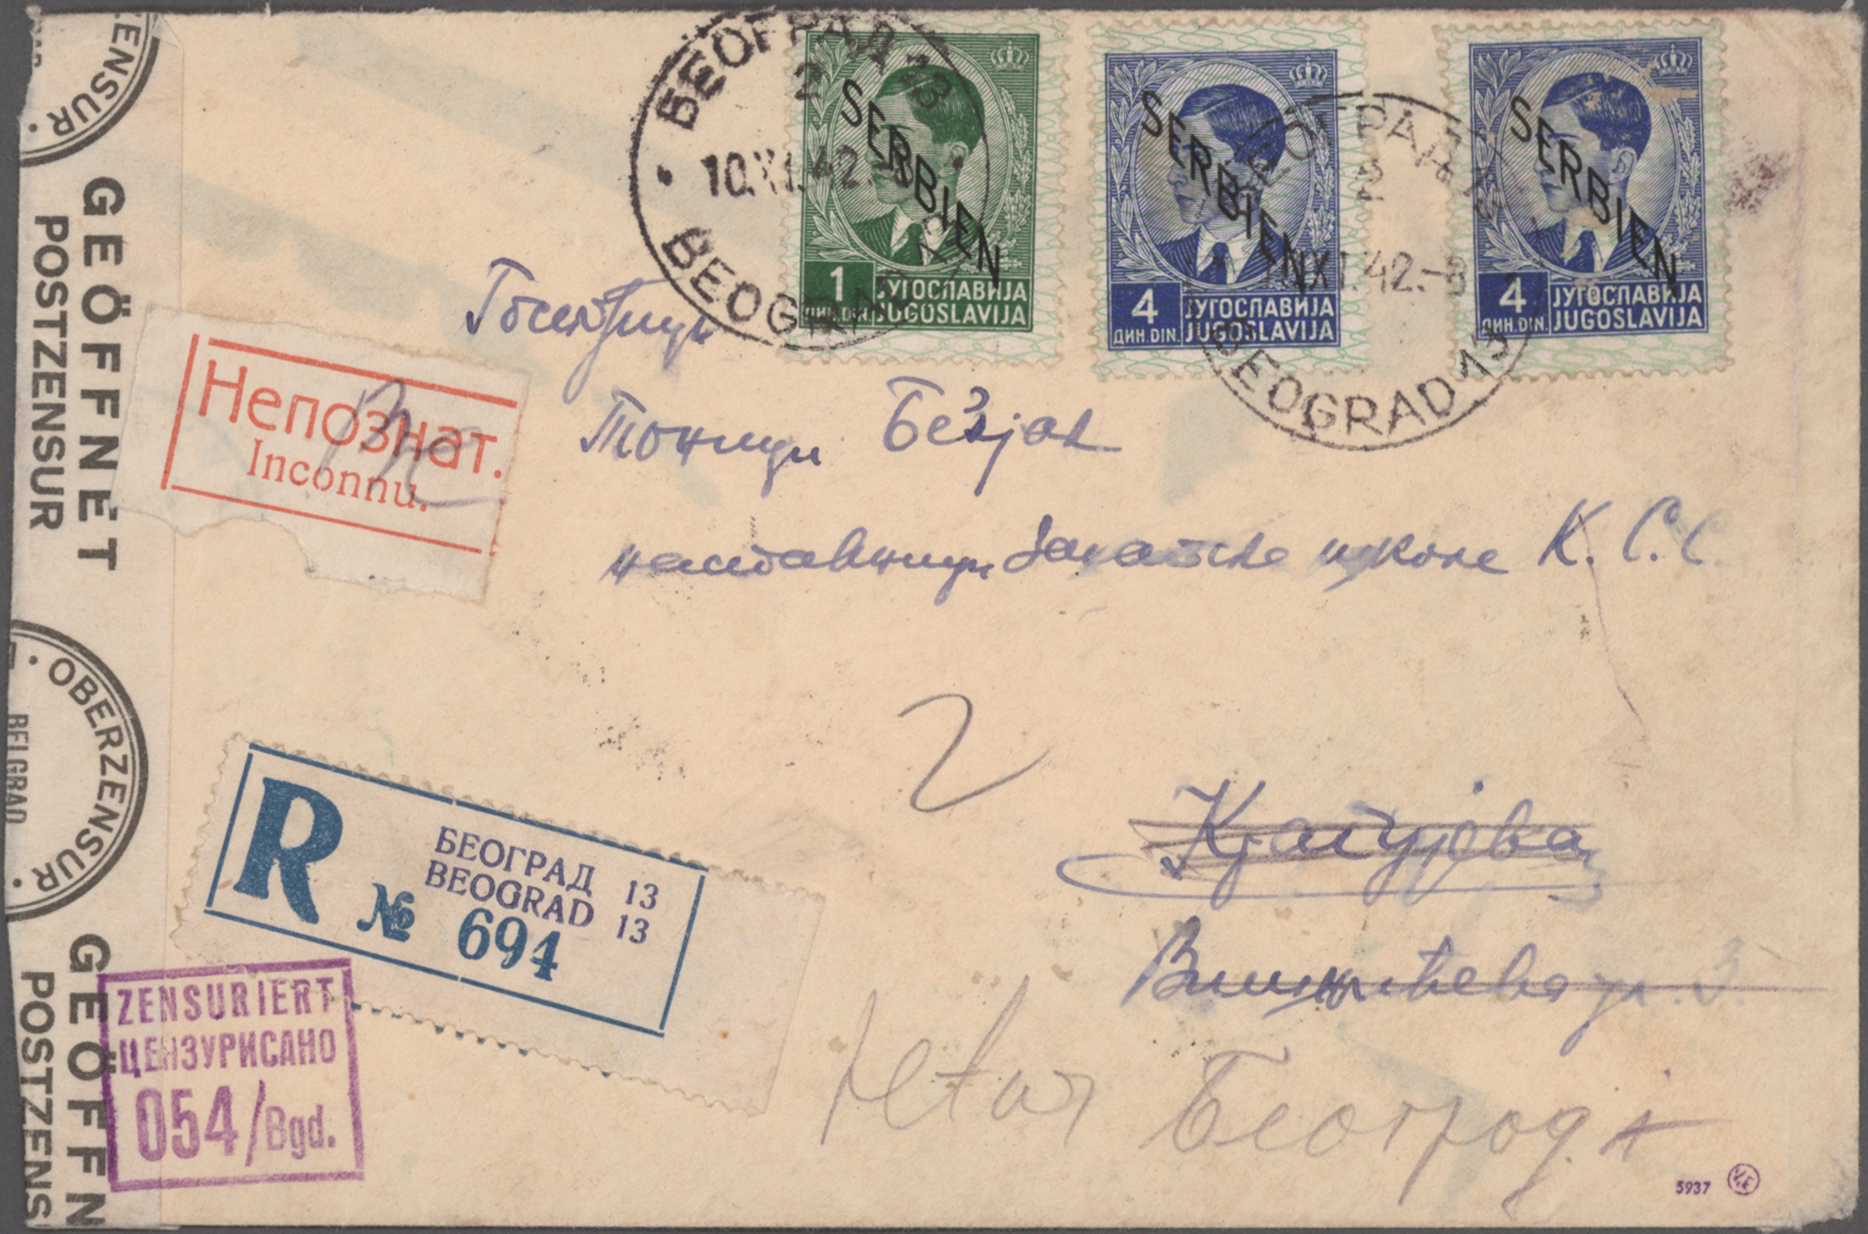 БЕОГРАД 13
2
10.XI.42.-8
BEOGRAD
SERBIEN
1
ДИН. DIN.
ЈУГОСЛАВИЈА
JUGOSLAVIJA
SERBIEN
4
ДИН. DIN.
ЈУГОСЛАВИЈА
JUGOSLAVIJA
SERBIEN
4
ДИН. DIN.
ЈУГОСЛАВИЈА
JUGOSLAVIJA
2
XI.42.-8
BEOGRAD 13
ZENSUR
GEÖFFNET
POSTZENSUR
Непознат.
Inconnu.
Госпођици
Тоници Безјак
наставници Занатске школе К. С. С.
OBERZENSUR
BELGRAD
R
БЕОГРАД 13
BEOGRAD 13
№ 694
Крагујевац
3.
Retour Београд
GEÖFFN
POSTZENS
ZENSURIERT
ЦЕНЗУРИСАНО
054/Bgd.
5937 V.E